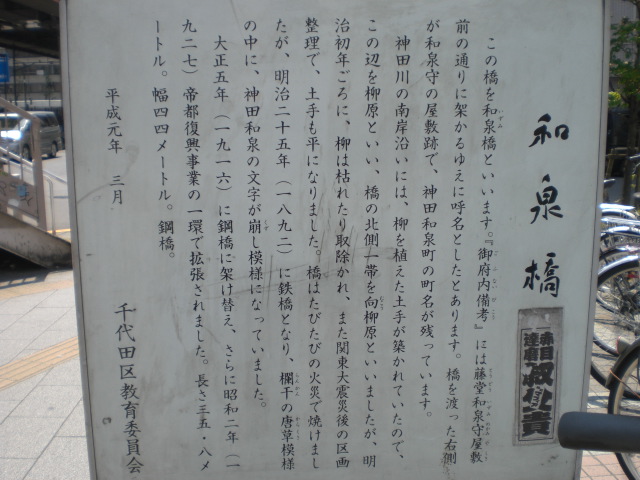 和泉橋
この橋を和泉橋といいます。『御府内備考』には藤堂和泉守屋敷
前の通りに架かるゆえに呼名としたとあります。橋を渡った右側
が和泉守の屋敷跡で、神田和泉町の町名が残っています。
神田川の南岸沿いには、柳を植えた土手が築かれていたので、
この辺を柳原といい、橋の北側一帯を向柳原といいましたが、明
治初年ごろに、柳は枯れたり取除かれ、また関東大震災後の区画
整理で、土手も平になりました。橋はたびたびの火災で焼けまし
たが、明治二十五年（一八九二）に鉄橋となり、欄干の唐草模様
の中に、神田和泉の文字が崩し模様になっていました。
大正五年（一九一六）に鋼橋に架け替え、さらに昭和二年（一
九二七）帝都復興事業の一環で拡張されました。長さ三五・八メ
ートル。幅四四メートル。鋼橋。
平成元年 三月
千代田区教育委員会